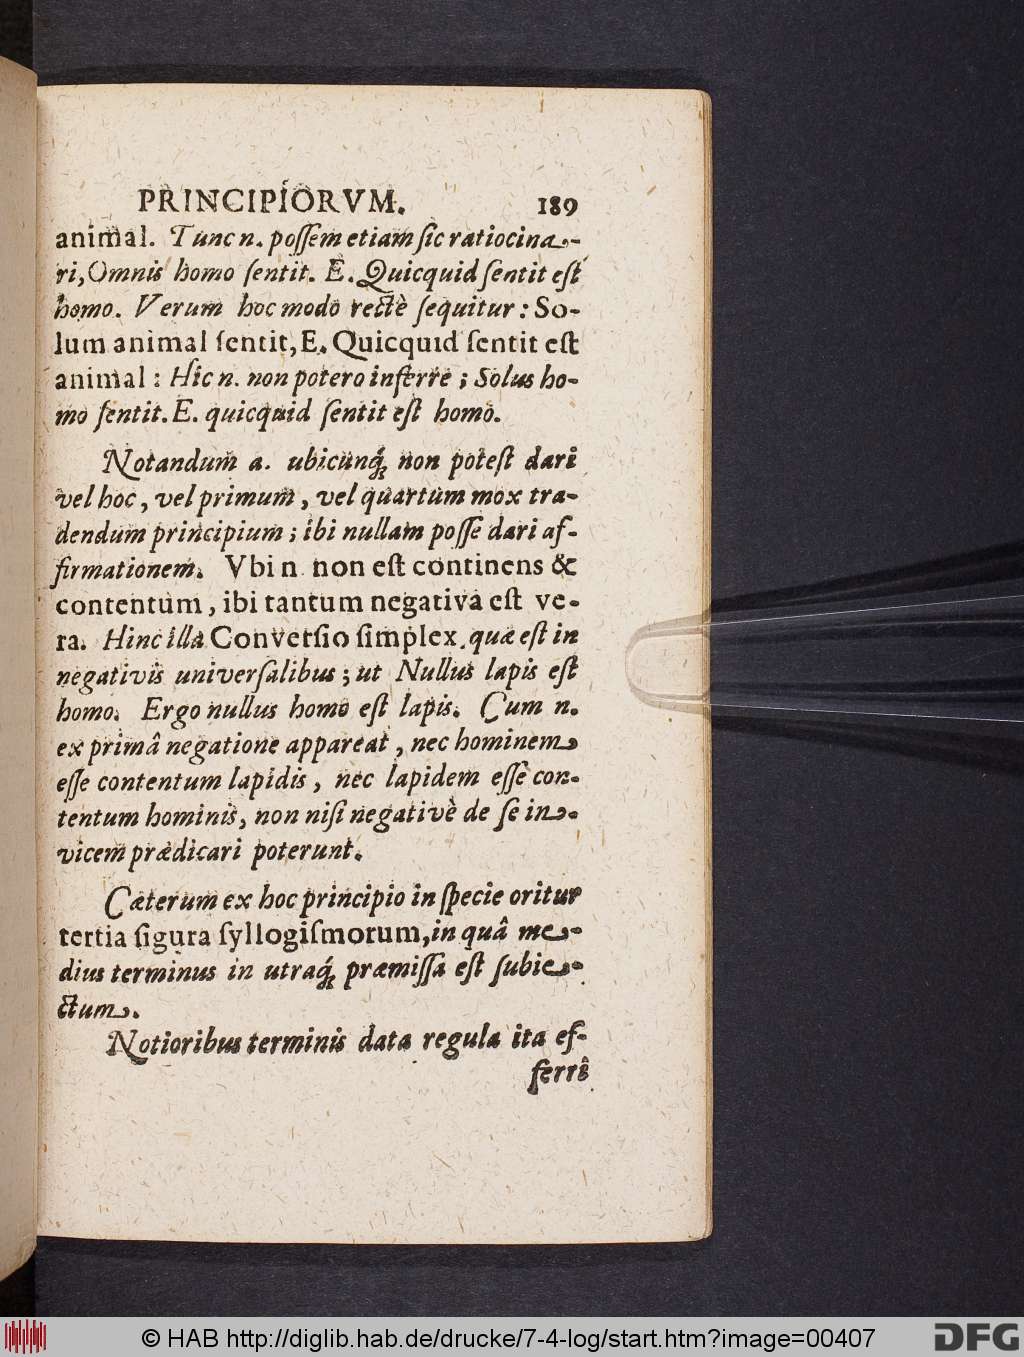 PRINCIPIORVM. 189
animal. Tunc n. poſſem etiam ſic ratiocina-
ri, Omnis homo ſentit. E. Quicquid ſentit eſt
homo. Verum hoc modo rectè ſequitur: So-
lum animal ſentit, E. Quicquid ſentit eſt
animal: Hic n. non potero inferre; Solus ho-
mo ſentit. E. quicquid ſentit eſt homo.
Notandum a. ubicunq́; non poteſt dari
vel hoc, vel primum, vel quartum mox tra-
dendum principium; ibi nullam poſſe dari af-
firmationem. Vbi n. non eſt continens &
contentum, ibi tantum negativa eſt ve-
ra. Hinc illa Converſio ſimplex, quæ eſt in
negativis univerſalibus; ut Nullus lapis eſt
homo. Ergo nullus homo eſt lapis. Cum n.
ex primâ negatione appareat, nec hominem
eſſe contentum lapidis, nec lapidem eſſe con-
tentum hominis, non niſi negativè de ſe in-
vicem prædicari poterunt.
Cæterum ex hoc principio in ſpecie oritur
tertia figura ſyllogiſmorum, in quâ me-
dius terminus in utraq́; præmiſſa eſt ſubie-
ctum.
Notioribus terminis data regula ita ef-
ferri
© HAB http://diglib.hab.de/drucke/7-4-log/start.htm?image=00407
DFG